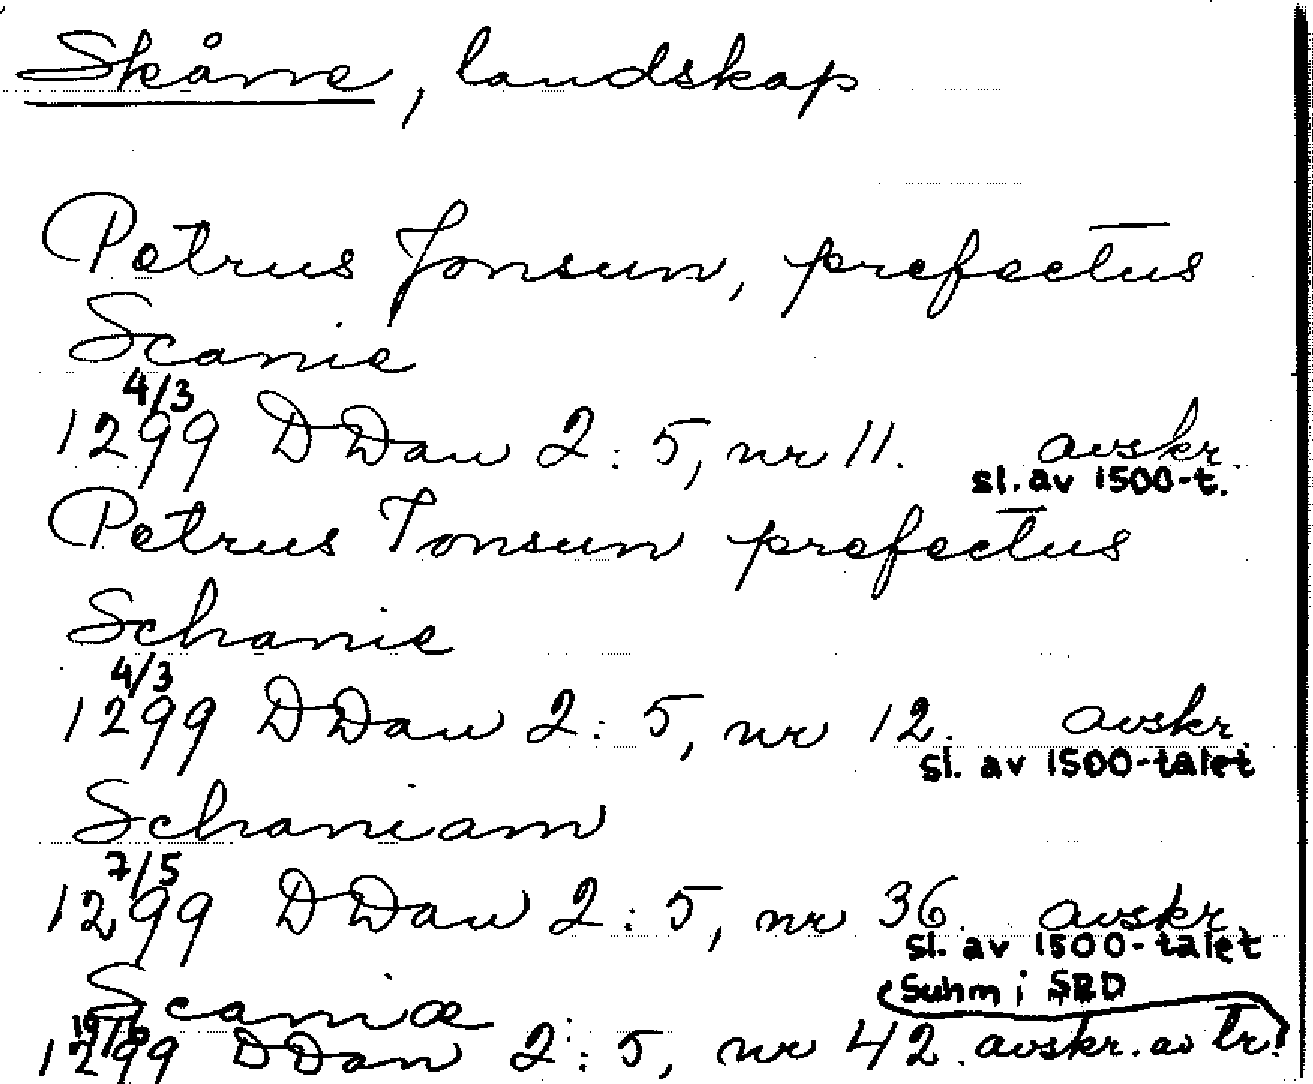 Skåne, landskap
Petrus Jonsun, prefectus
Scanie
4/3
1299 DDan 2:5, nr 11. avskr.
sl. av 1500-t.
Petrus Ionsun prefectus
Schanie
4/3
1299 DDan 2:5, nr 12. avskr.
sl. av 1500-talet
Schaniam
7/5
1299 DDan 2:5, nr 36. avskr.
sl. av 1500-talet
Scaniæ
Suhm i SRD
1299 DDan 2:5, nr 42. avskr. av tr.